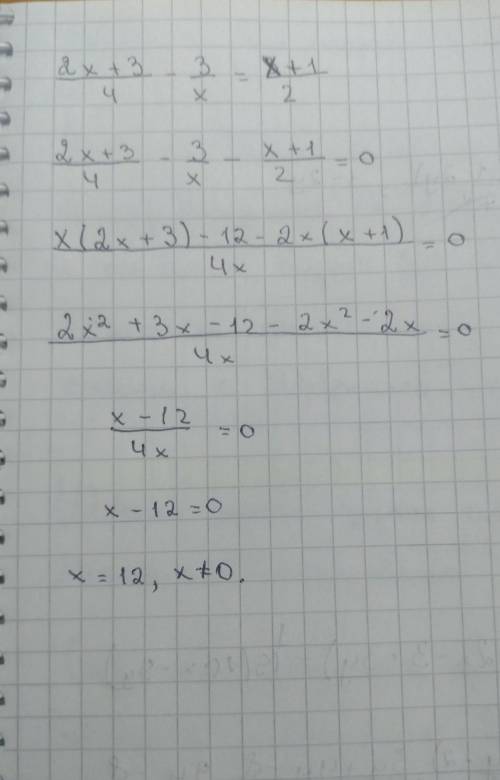 (2x + 3)/4 - 3/x = (x + 1)/2
(2x + 3)/4 - 3/x - (x + 1)/2 = 0
(x(2x + 3) - 12 - 2x(x + 1))/4x = 0
(2x² + 3x - 12 - 2x² - 2x)/4x = 0
(x - 12)/4x = 0
x - 12 = 0
x = 12, x ≠ 0.